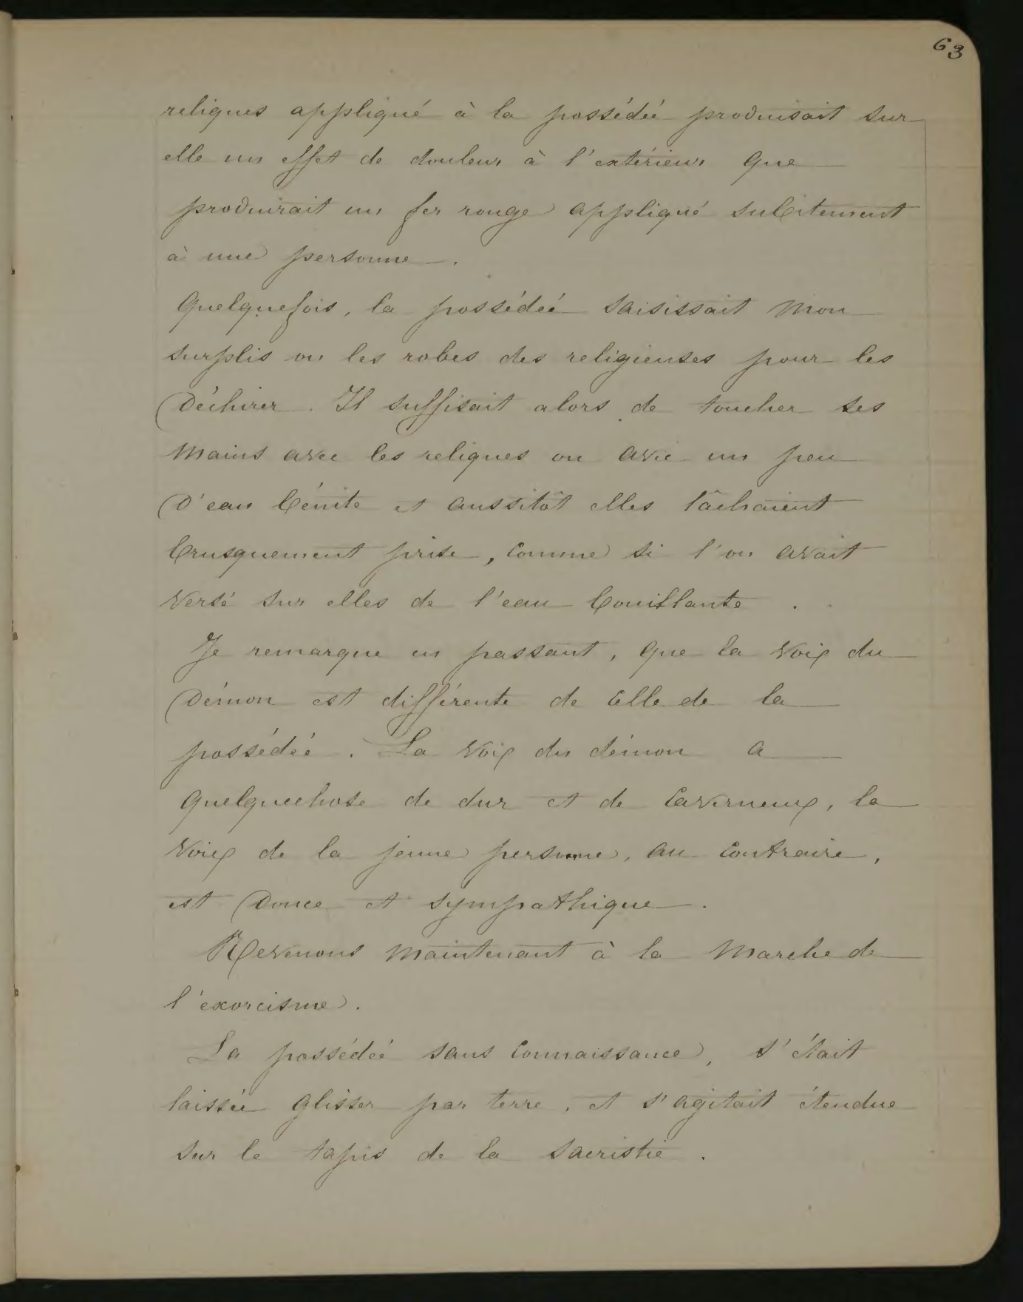 63
reliques appliqué à la possédée produisait sur
elle un effet de douleur à l'extérieur que
produirait un fer rouge appliqué subitement
à une personne.
Quelquefois, la possédée saisissait mon
surplis ou les robes des religieuses pour les
Déchirer. Il suffisait alors de toucher ses
mains avec les reliques ou avec un peu
D'eau bénite et aussitôt elles lâchaient
brusquement prise, comme si l'on avait
versé sur elles de l'eau bouillante.
Je remarque en passant, que la voix du
Démon est différente de celle de la
possédée. La voix du démon a
quelquechose de dur et de caverneux, la
voix de la jeune personne, au contraire,
est Douce et sympathique.
Revenons maintenant à la marche de
l'exorcisme.
La possédée sans connaissance, s'était
laissée glisser par terre, et s'agitait étendue
sur le tapis de la sacristie.